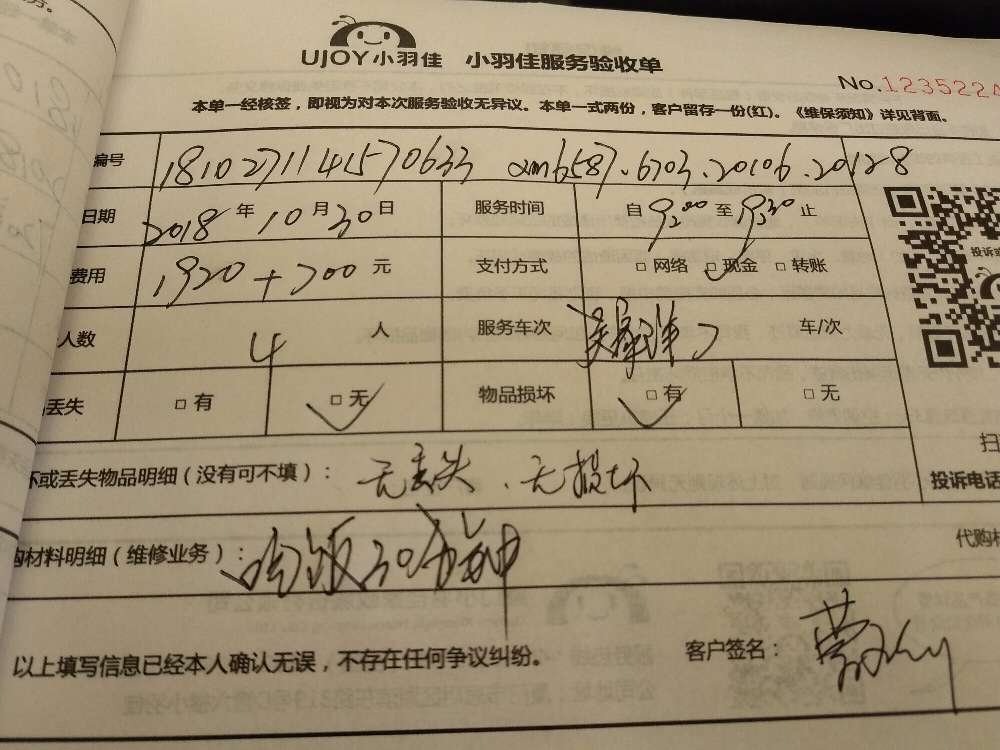 UJOY小羽佳 小羽佳服务验收单
No.1235224
本单一经核签，即视为对本次服务验收无异议。本单一式两份，客户留存一份(红)。《维保须知》详见背面。
编号 181027114157063
日期 2018年10月30日 服务时间 自 至 止
费用 1920+200元 支付方式 □网络 □现金 □转账
人数 4人 服务车次 车/次
丢失 □有 □无 物品损坏 □有 □无
坏或丢失物品明细（没有可不填）：无丢失、无损坏
投诉电话
购材料明细（维修业务）：吃饭30分钟
代购材
以上填写信息已经本人确认无误，不存在任何争议纠纷。 客户签名：